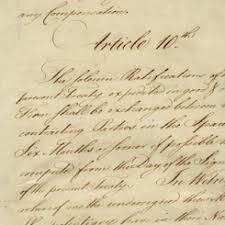 any Compensation.
Article 10th
The solemn Ratifications of
present Treaty expedited in good &
Form shall be exchanged between
contracting Parties in the Space
Six Months or sooner if possible
computed from the Day of the Sign
of the present Treaty. In Witne
whereof we the undersigned their
have in their